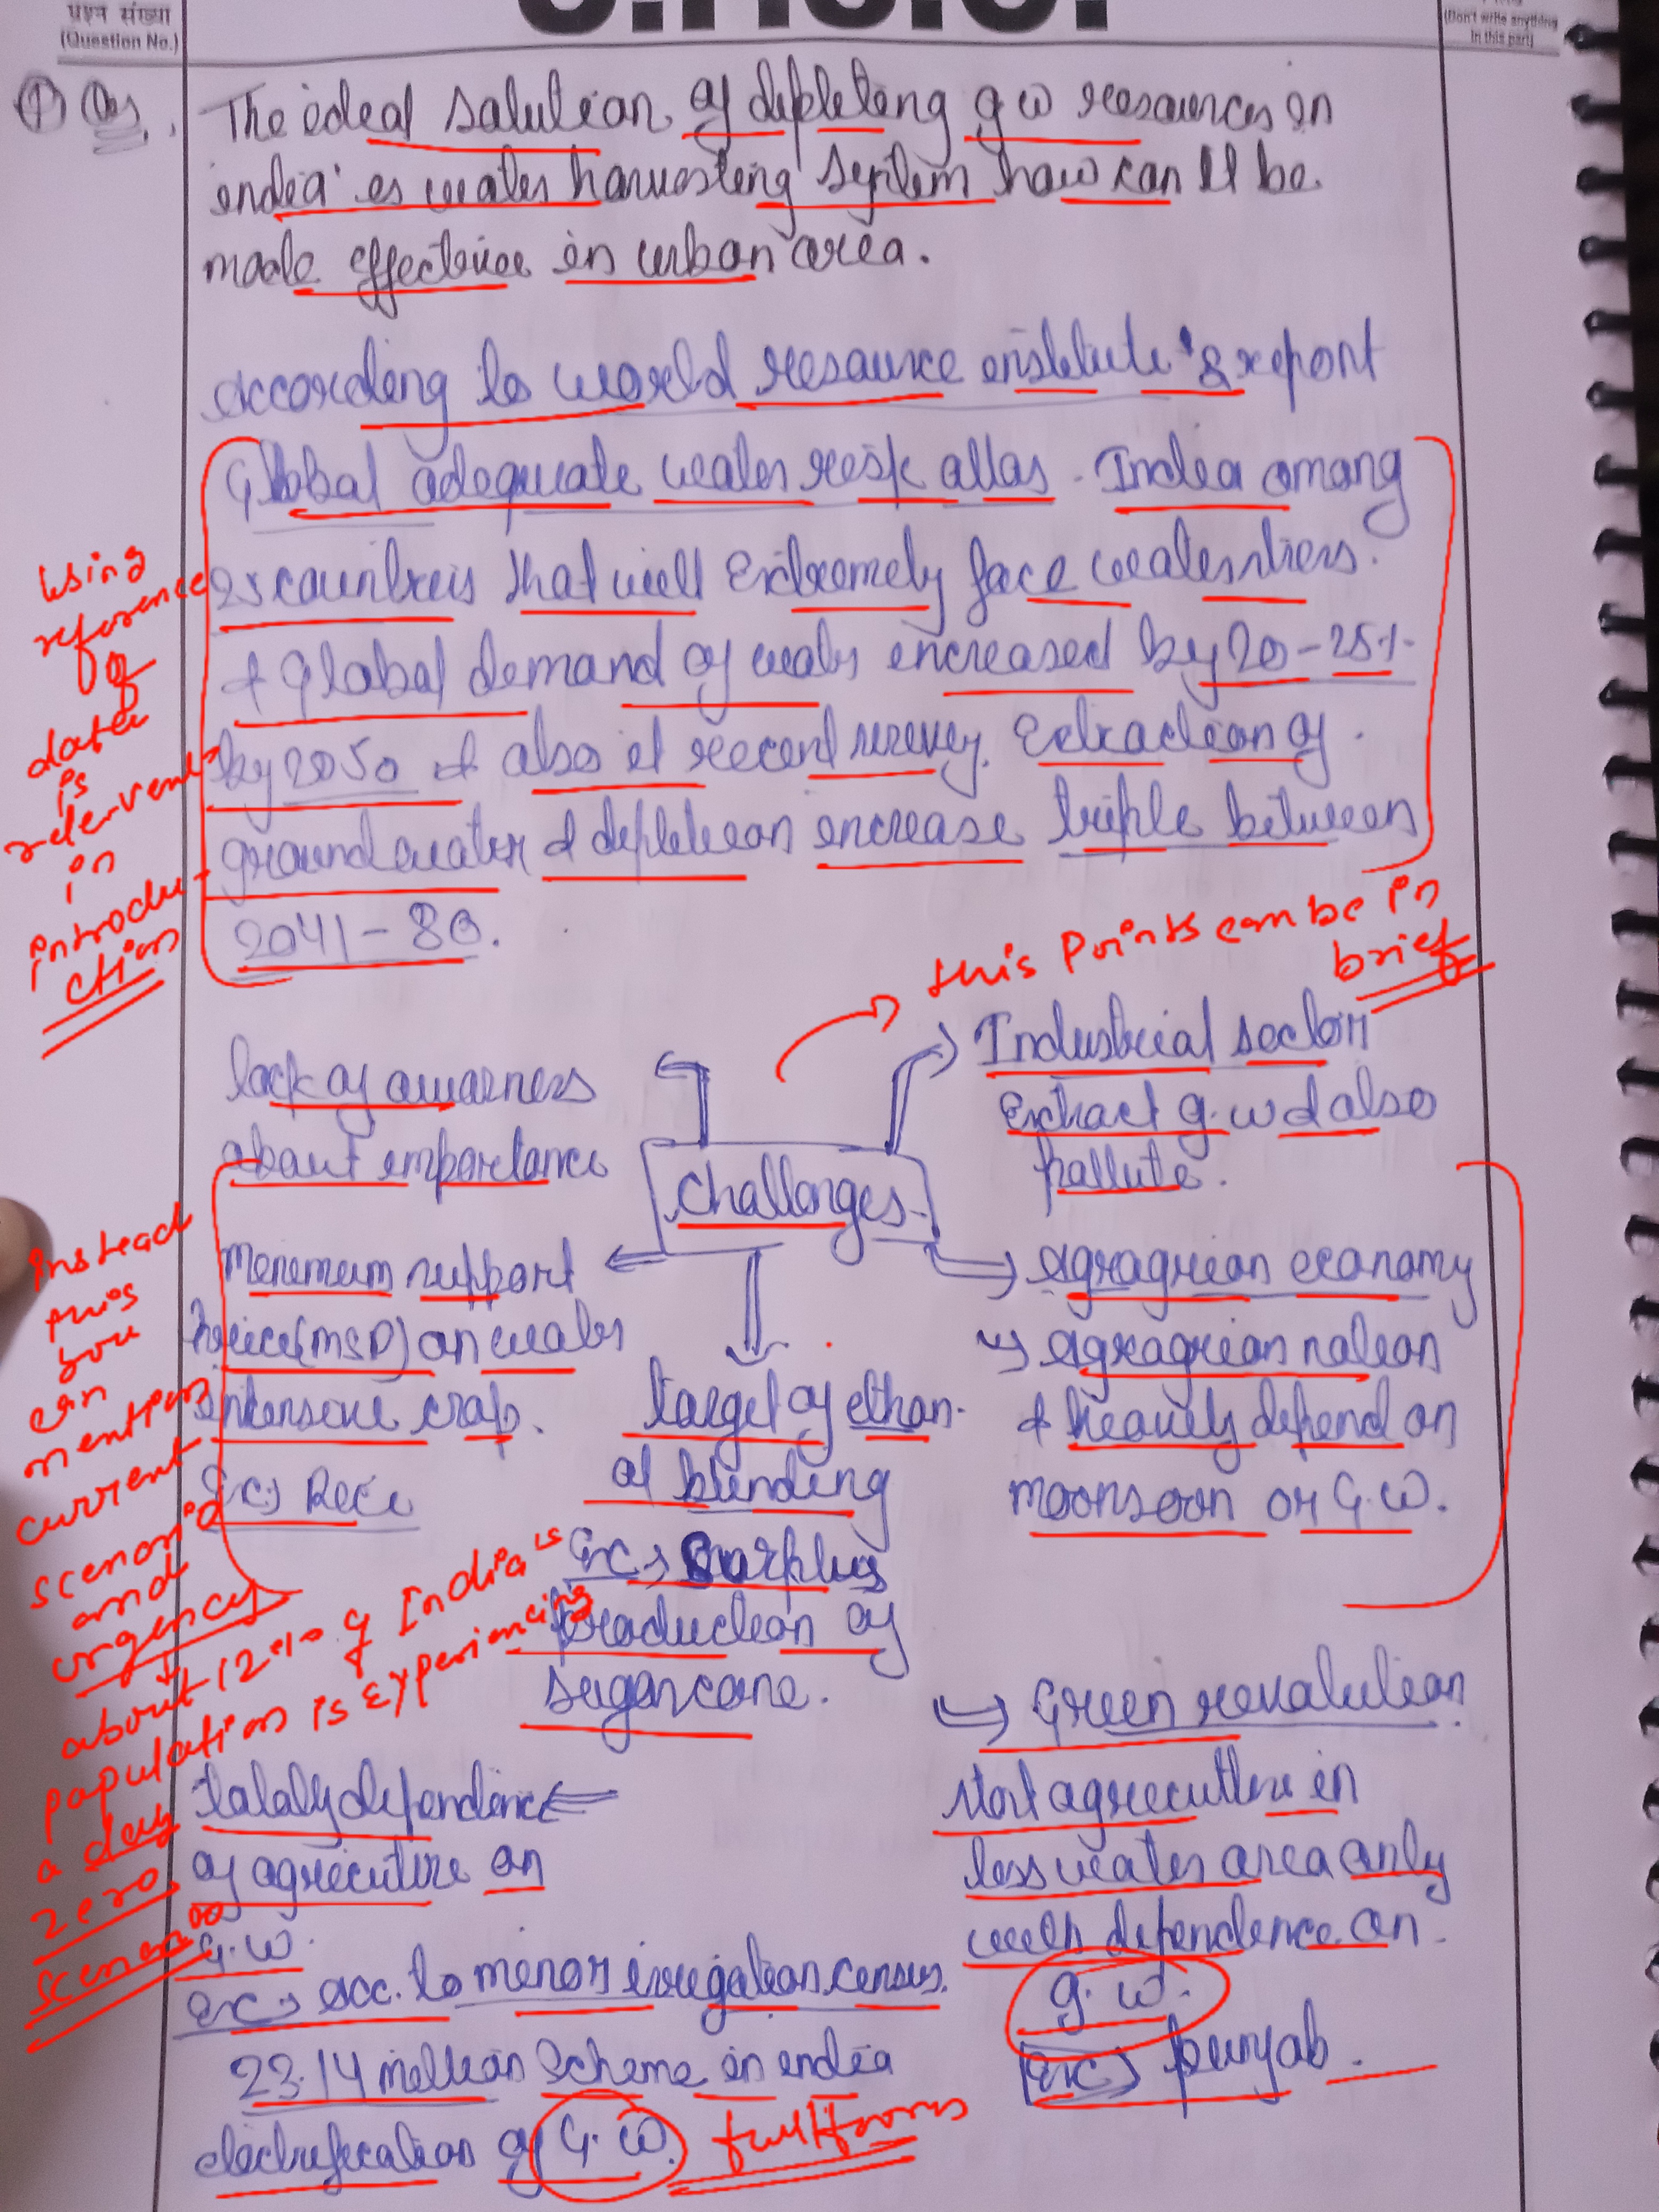 प्रश्न संख्या
(Question No.)
(Don't write anything
in this part)
Q1.
The ideal solution of depleting g w resources in
india' is water harvesting system how can it be
made effective in urban area.
according to world resource institute's report
Global adequate water risk atlas. India among
25 countries that will Extremely face water stress.
& global demand of water increased by 20-25%
by 2050 & also it recent survey. Extraction of
groundwater & depletion increase triple between
2041-80.
Using
reference
of
data
is
relevent
in
introdu-
ction
this points can be in
brief
Challenges
lack of awarness
about importance
Industrial sector
Extract g.w & also
pollute.
Minimum support
price(MSP) on water
intensive crop.
Ex:→ Rice
target of ethan-
ol blending
Ex:→ Surplus
production of
sugarcane.
Agragrian economy
→ Agragrian nation
& heavily depend on
moonsoon or G.W.
instead
this
you
can
mention
current
scenario
and
urgency
about 12% of India's
population is experiencing
a day
zero
scenario
totaly dependence
of agricuture on
G.W.
Ex:→ acc. to minor irrigation census.
23.14 million Scheme in india
electrification of G.W.
fullform
→ Green revolution
start agricultire in
less water area only
with dependence on
g.w.
Ex:→ punjab.